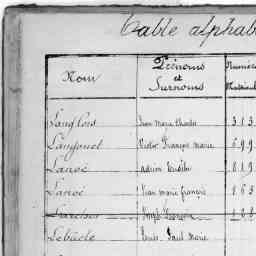 Table alphab
Nom
Prénoms
et
Surnoms
Numéro
Matricul
Langlois Jean Marie Charles 313
Langonet Victor François Marie 699
Lanoë Adrien 819
Lanoë Jean Marie françois 163
Lebâcle Louis Paul Marie